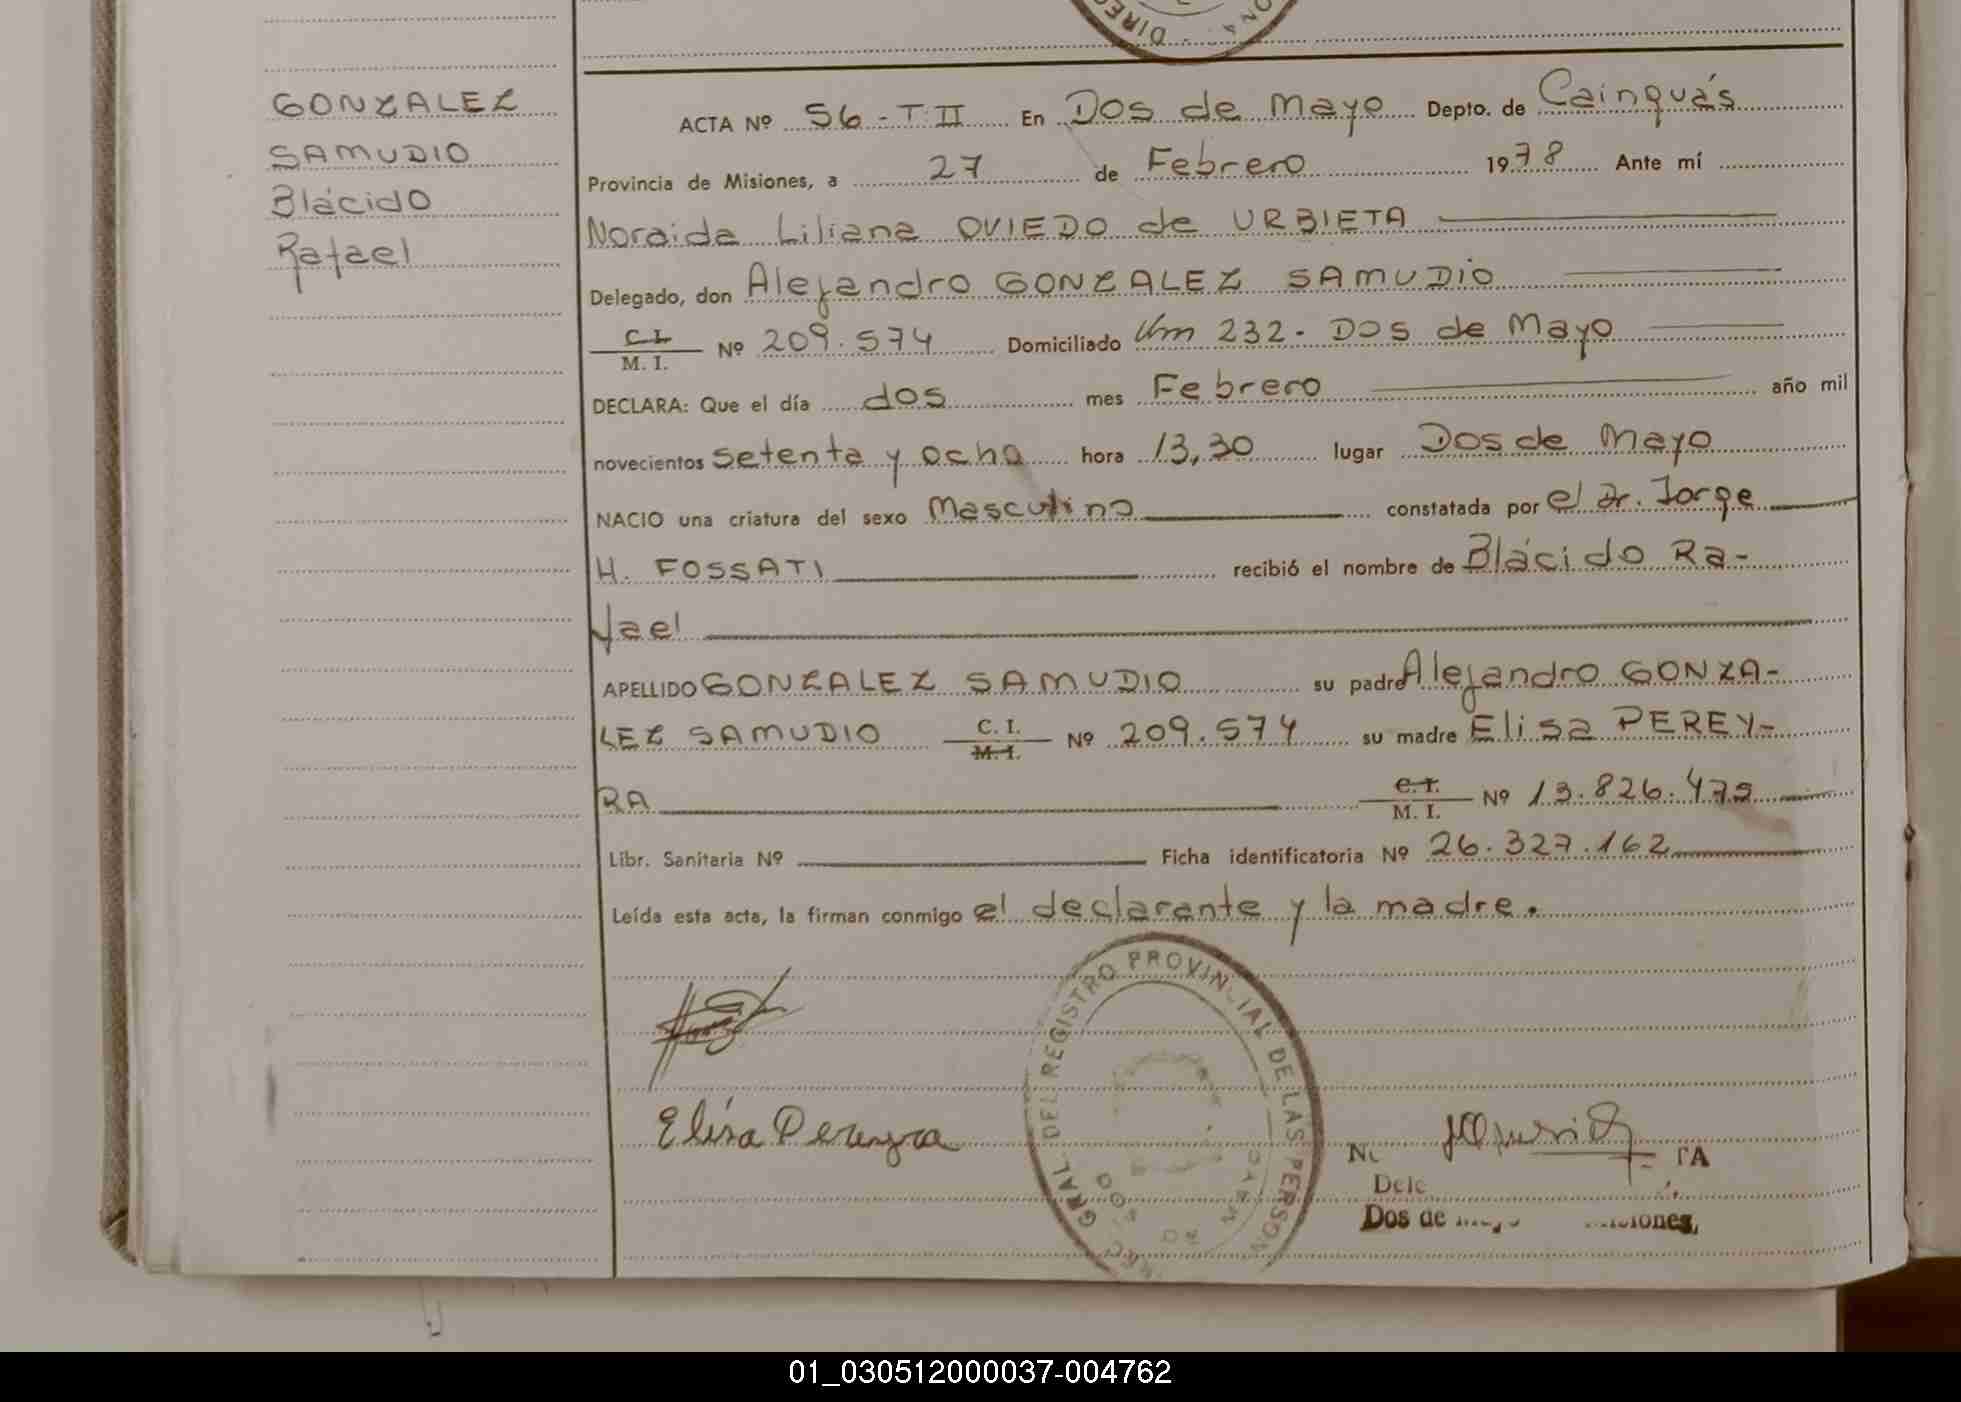 DIREC
ONA
GONZALEZ
SAMUDIO
Blácido
Rafael
ACTA Nº 56 - T. II En Dos de Mayo Depto. de Cainguás
Provincia de Misiones, a 27 de Febrero 1978 Ante mí
Noraida Liliana OVIEDO de URBIETA
Delegado, don Alejandro GONZALEZ SAMUDIO
C. I.
M. I. Nº 209.574 Domiciliado Km 232 - Dos de Mayo
DECLARA: Que el día dos mes Febrero año mil
novecientos setenta y ocho hora 13,30 lugar Dos de Mayo
NACIO una criatura del sexo Masculino constatada por el Dr. Jorge
H. FOSSATI recibió el nombre de Blácido Ra-
fael
APELLIDO GONZALEZ SAMUDIO su padre Alejandro GONZA-
LEZ SAMUDIO C. I. Nº 209.574 su madre Elisa PEREY-
M. I.
RA C. I. Nº 13.826.479
M. I.
Libr. Sanitaria Nº Ficha identificatoria Nº 26.327.162
Leída esta acta, la firman conmigo el declarante y la madre.
GRAL. DEL REGISTRO PROVINCIAL DE LAS PERSON
Elisa Pereyra
TA
Dele
Dos de Mayo
01_030512000037-004762